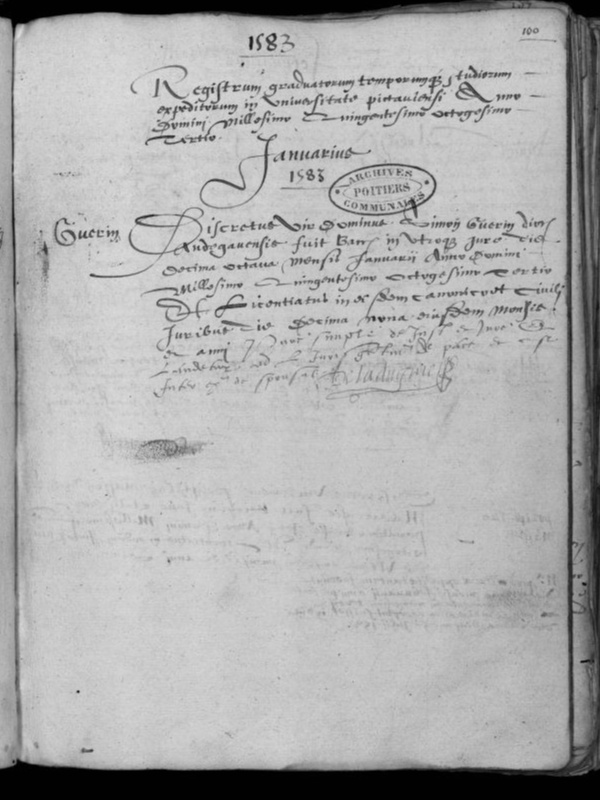 100
1583
Registrum graduatorum temporumq₃ studiorum
expeditorum in Universitate pictaviensi Anno
Domini Millesimo Quingentesimo octogesimo
Tertio
Januarius
1583
ARCHIVES
POITIERS
COMMUNALES
Guerin
Discretus Vir Dominus Simon Guerin dioc
Andegavensis fuit Bacc in Utroq₃ Jure Die
Decima octava Mensis Januarii Anno Domini
Millesimo Quingentesimo Octogesimo Tertio
Et Licentiatus in eisdem Canonico et Civili
Juribus Die Decima nona eiusdem Mensis
et anni
de
Inter de sponsal